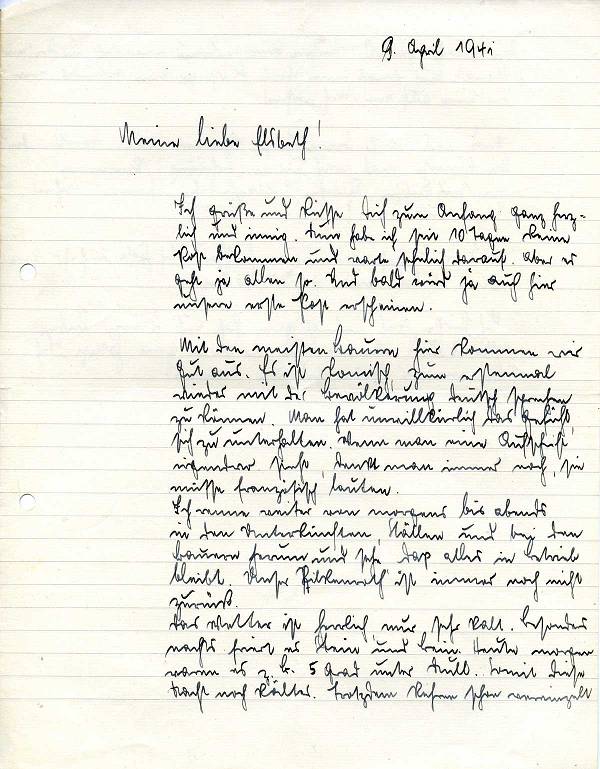 9. April 1941
Meine liebe Elsbeth!
Ich grüße und küsse Dich zum Anfang ganz herz-
lich und innig. Nun habe ich seit 10 Tagen keine
Post bekommen und warte sehnlich darauf. Aber es
geht ja allen so. Und bald wird ja auch hier
unsere erste Post erscheinen.
Mit den meisten Bauern hier kommen wir
gut aus. Es ist komisch, zum erstenmal
wieder mit der Bevölkerung deutsch sprechen
zu können. Man hat unwillkürlich das Gefühl,
sich zu unterhalten. Wenn man eine Aufschrift
irgendwo sieht, denkt man immer noch, sie
müsse französisch lauten.
Ich renne weiter von morgens bis abends
in den Unterkünften, Ställen und bei den
Bauern herum und sehe, daß alles in Betrieb
bleibt. Unser ist immer noch nicht
zurück.
Das Wetter ist herrlich, nur sehr kalt. Besonders
nachts friert es Stein und Bein. Heute morgen
waren es z. B. 5 Grad unter Null. Somit diese
Nacht noch kälter. Trotzdem kehren schon vereinzelt